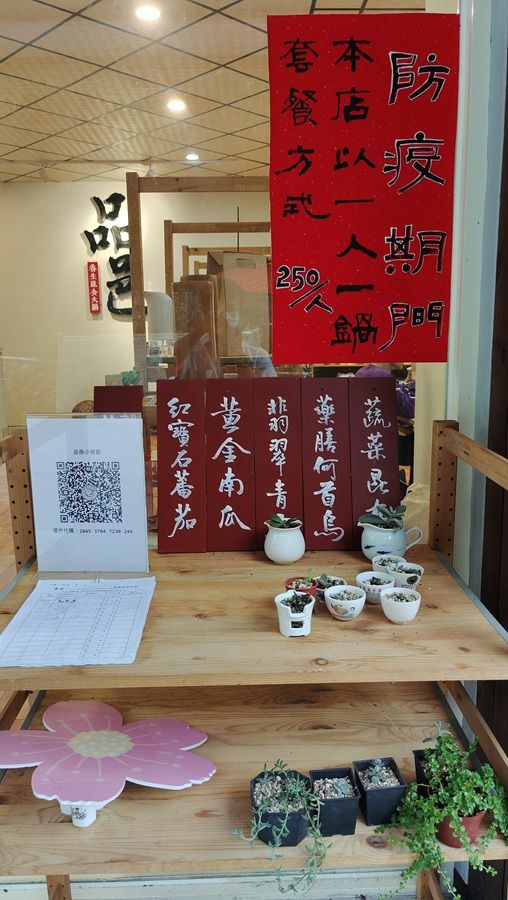 防疫期間
本店以一人一鍋
套餐方式
250/人
品邑
養生蔬食火鍋
蔬菜昆布
藥膳何首烏
翡翠青
黃金南瓜
紅寶石蕃茄
品邑小吃部
場所代碼：2845 3704 7230 244